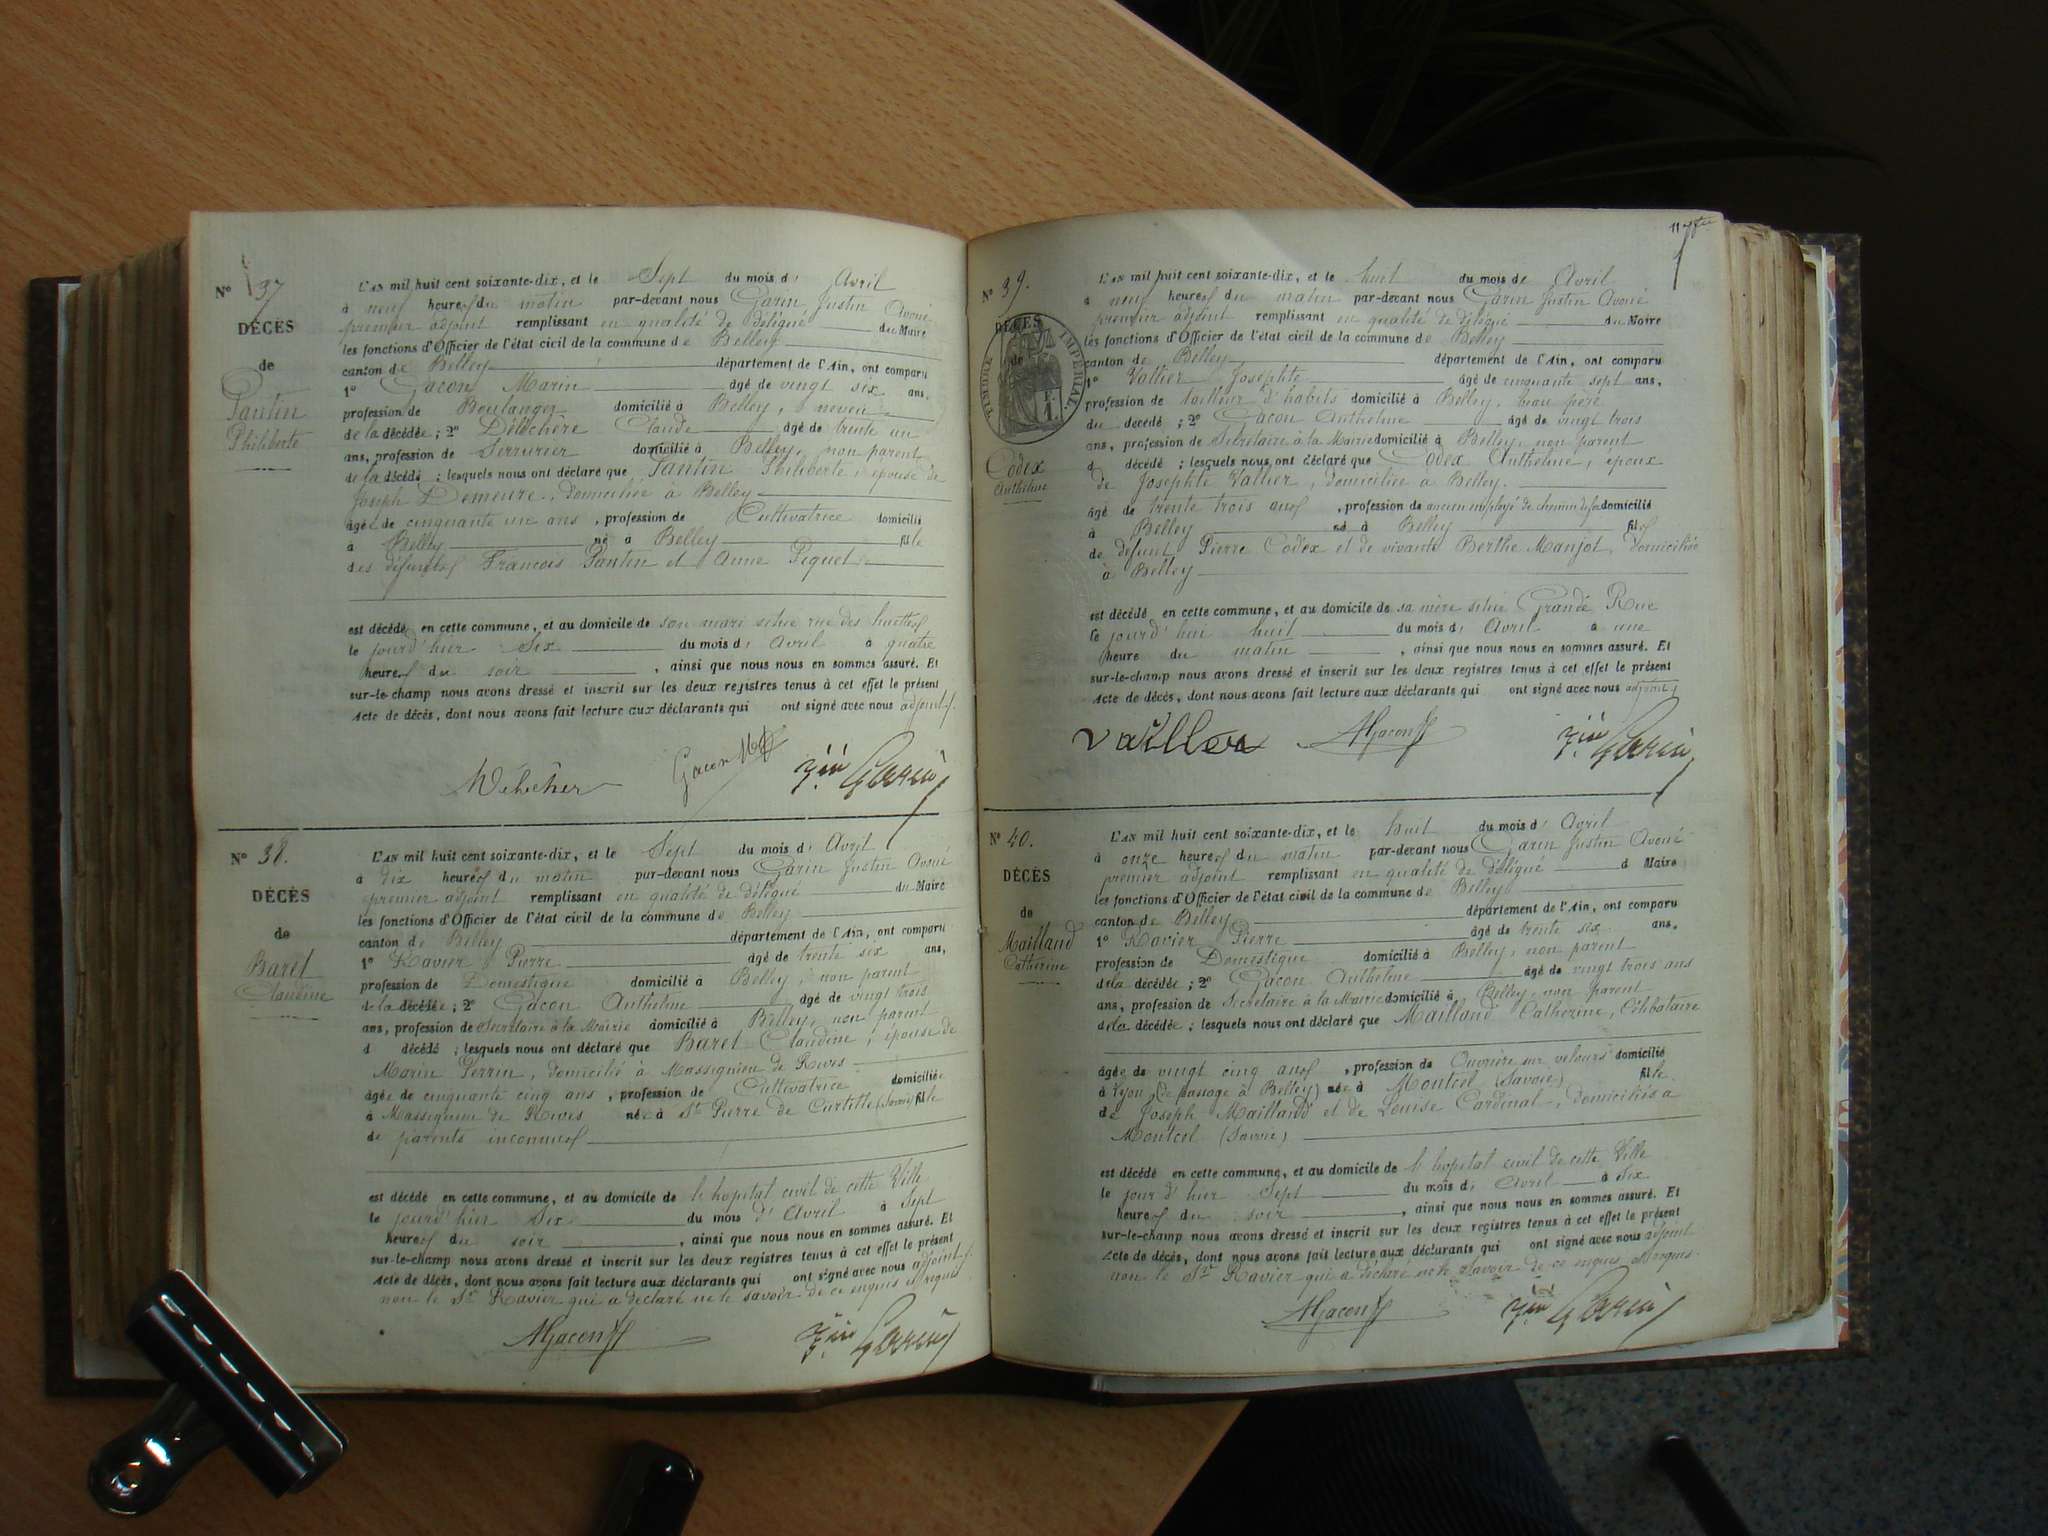 N° 37
DÉCÈS
de
Pantin
Philiberte
L'AN mil huit cent soixante-dix, et le Sept du mois d' Avril
à neuf heures du matin par-devant nous Garin Justin Avoué
premier adjoint remplissant en qualité de délégué du Maire
les fonctions d'Officier de l'état civil de la commune de Belley
canton de Belley département de l'Ain, ont comparu
1° Gacon Marin âgé de vingt six ans,
profession de Boulanger domicilié à Belley, neveu
de la décédée ; 2° Claude âgé de trente un
ans, profession de Serrurier domicilié à Belley, non parent
de la décédé ; lesquels nous ont déclaré que Pantin Philiberte, épouse de
Joseph Demeure, domiciliée à Belley
âgée de cinquante un ans , profession de Cultivatrice domicilié
à Belley né à Belley fille
des défunts François Pantin et Anne Piquet
est décédé en cette commune, et au domicile de son mari situé rue des huttes
le jourd'hier Six du mois d' Avril à quatre
heures du soir , ainsi que nous nous en sommes assuré. Et
sur-le-champ nous avons dressé et inscrit sur les deux registres tenus à cet effet le présent
Acte de décès, dont nous avons fait lecture aux déclarants qui ont signé avec nous adjoint.
Gacon Garin
N° 38.
DÉCÈS
de
Baret
Claudine
L'AN mil huit cent soixante-dix, et le Sept du mois d' Avril
à dix heures du matin par-devant nous Garin Justin Avoué
premier adjoint remplissant en qualité de délégué du Maire
les fonctions d'Officier de l'état civil de la commune de Belley
canton de Belley département de l'Ain, ont comparu
1° Ravier Pierre âgé de trente six ans,
profession de Domestique domicilié à Belley, non parent
de la décédée ; 2° Gacon Anthelme âgé de vingt trois
ans, profession de Secrétaire à la Mairie domicilié à Belley, non parent
d décédé ; lesquels nous ont déclaré que Baret Claudine, épouse de
Marin Perrin, domicilié à Massignieu de Rives
âgée de cinquante cinq ans , profession de Cultivatrice domiciliée
à Massignieu de Rives née à St Pierre de Curtille (Savoie) fille
de parents inconnus
est décédé en cette commune, et au domicile de l'hopital civil de cette Ville
le jourd'hier Six du mois d' Avril à Sept
heures du soir , ainsi que nous nous en sommes assuré. Et
sur-le-champ nous avons dressé et inscrit sur les deux registres tenus à cet effet le présent
Acte de décès, dont nous avons fait lecture aux déclarants qui ont signé avec nous adjoint
non le Sr Ravier qui a déclaré ne le savoir de ce enquis et requis
AGacon Garin
N° 39.
DÉCÈS
de
TIMBRE IMPÉRIAL
1 F.
Codex
Anthelme
L'AN mil huit cent soixante-dix, et le huit du mois de Avril
à neuf heures du matin par-devant nous Garin Justin Avoué
premier adjoint remplissant en qualité de délégué du Maire
les fonctions d'Officier de l'état civil de la commune de Belley
canton de Belley département de l'Ain, ont comparu
1° Vallier Josephte âgé de cinquante sept ans,
profession de tailleur d'habits domicilié à Belley, beau père
du décédé ; 2° Gacon Anthelme âgé de vingt trois
ans, profession de Secrétaire à la Mairie domicilié à Belley, non parent
d décédé ; lesquels nous ont déclaré que Codex Anthelme, époux
de Josephte Vallier, domiciliée à Belley.
âgé de trente trois ans , profession de ancien employé de chemin de fer domicilié
à Belley né à Belley fils
de défunt Pierre Codex et de vivante Berthe Manjot, domiciliée
à Belley
est décédé en cette commune, et au domicile de sa mère situé Grande Rue
le jourd'hui huit du mois d' Avril à une
heure du matin , ainsi que nous nous en sommes assuré. Et
sur-le-champ nous avons dressé et inscrit sur les deux registres tenus à cet effet le présent
Acte de décès, dont nous avons fait lecture aux déclarants qui ont signé avec nous adjoint
AGacon Garin
N° 40.
DÉCÈS
de
Mailland
Catherine
L'AN mil huit cent soixante-dix, et le huit du mois d' Avril
à onze heures du matin par-devant nous Garin Justin Avoué
premier adjoint remplissant en qualité de délégué d Maire
les fonctions d'Officier de l'état civil de la commune de Belley
canton de Belley département de l'Ain, ont comparu
1° Ravier Pierre âgé de trente six ans,
profession de Domestique domicilié à Belley, non parent
de la décédée ; 2° Gacon Anthelme âgé de vingt trois ans
ans, profession de Secrétaire à la Mairie domicilié à Belley, non parent
de la décédée ; lesquels nous ont déclaré que Mailland Catherine, Célibataire
âgée de vingt cinq ans , profession de Ouvrière sur velours domicilié
à Lyon (de passage à Belley) née à Montcel (Savoie) fille
de Joseph Mailland et de Louise Cardinal, domiciliés à
Montcel (Savoie)
est décédé en cette commune, et au domicile de l'hopital civil de cette Ville
le jour d'hier Sept du mois d' Avril à Six
heures du soir , ainsi que nous nous en sommes assuré. Et
sur-le-champ nous avons dressé et inscrit sur les deux registres tenus à cet effet le présent
Acte de décès, dont nous avons fait lecture aux déclarants qui ont signé avec nous adjoint
non le Sr Ravier qui a déclaré ne le savoir de ce enquis et requis.
AGacon Garin